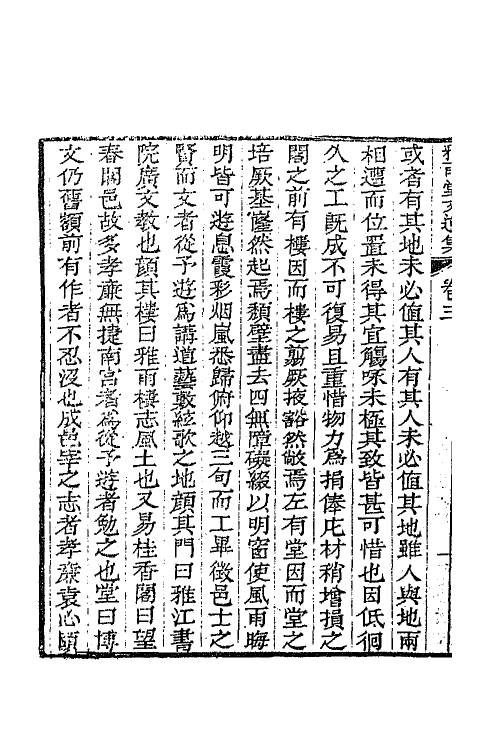 雅雨堂文遺集 卷三
或者有其地未必值其人有其人未必值其地雖人與地兩
相遭而位置未得其宜觴咏未極其致皆甚可惜也因低徊
久之工既成不可復易且重惜物力為捐俸庀材稍增損之
閣之前有樓因而樓之翦厥掖豁然敞焉左有堂因而堂之
培厥基窿然起焉頽壁盡去四無障礙綴以明窗使風雨晦
明皆可遊息霞彩烟嵐悉歸俯仰越三旬而工畢徵邑士之
賢而文者從予遊為講道藝敷絃歌之地顔其門曰雅江書
院廣文教也顔其樓曰雅雨樓志風土也又易桂香閣曰望
春閣邑故多孝廉無捷南宮者為從予遊者勉之也堂曰博
文仍舊額前有作者不忍沒也成邑宰之志者孝廉袁心頤